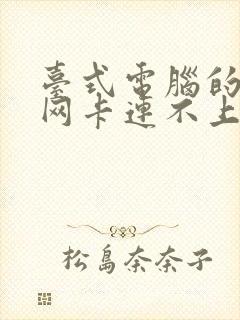 臺式電腦的
网卡連不上
松島奈奈子